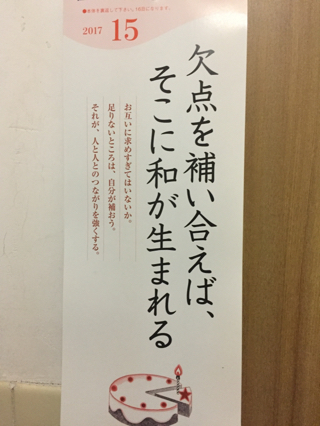 2017 15
欠点を補い合えば、
そこに和が生まれる
お互いに求めすぎてはいないか。
足りないところは、自分が補おう。
それが、人と人とのつながりを強くする。